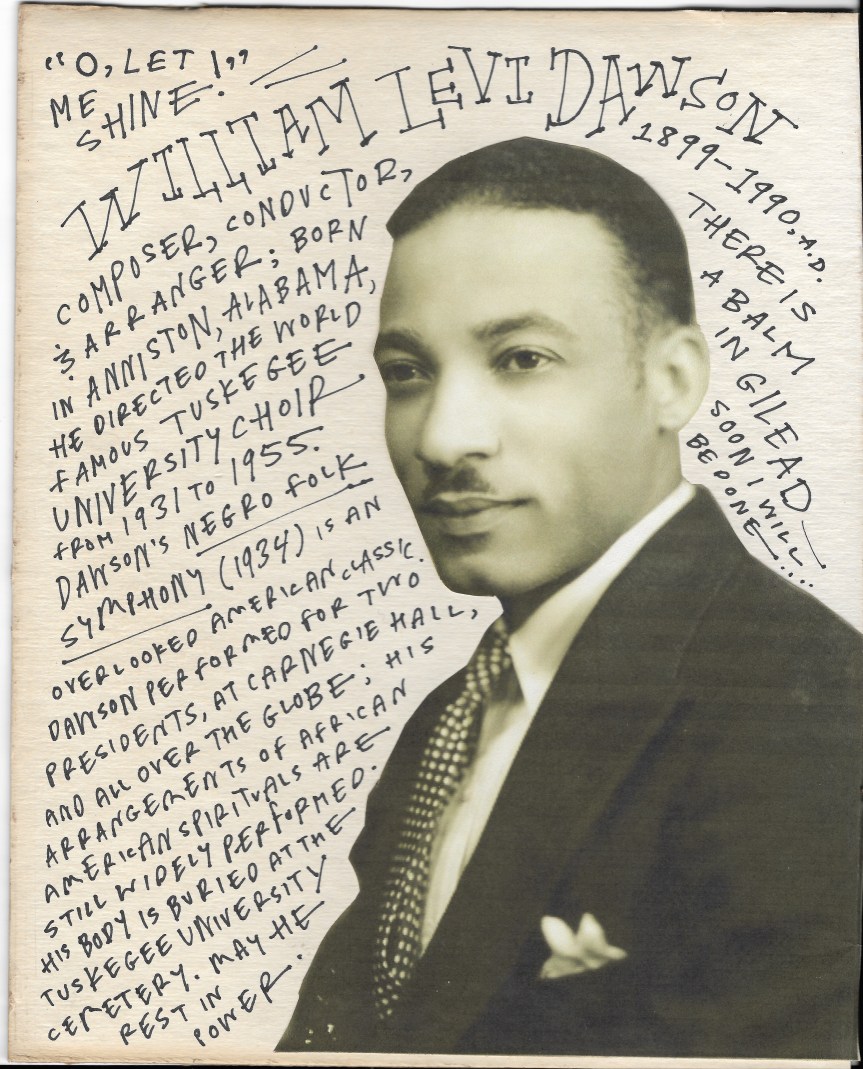 "O, LET
ME
SHINE!"
WILLIAM LEVI DAWSON
1899-1990, A.D.
COMPOSER, CONDUCTOR,
& ARRANGER; BORN
IN ANNISTON, ALABAMA,
HE DIRECTED THE WORLD
FAMOUS TUSKEGEE
UNIVERSITY CHOIR
FROM 1931 TO 1955.
DAWSON'S NEGRO FOLK
SYMPHONY (1934) IS AN
OVERLOOKED AMERICAN CLASSIC.
DAWSON PERFORMED FOR TWO
PRESIDENTS, AT CARNEGIE HALL,
AND ALL OVER THE GLOBE; HIS
ARRANGEMENTS OF AFRICAN
AMERICAN SPIRITUALS ARE
STILL WIDELY PERFORMED.
HIS BODY IS BURIED AT THE
TUSKEGEE UNIVERSITY
CEMETERY. MAY HE
REST IN
POWER.
THERE IS
A BALM
IN GILEAD
SOON I WILL
BE DONE....